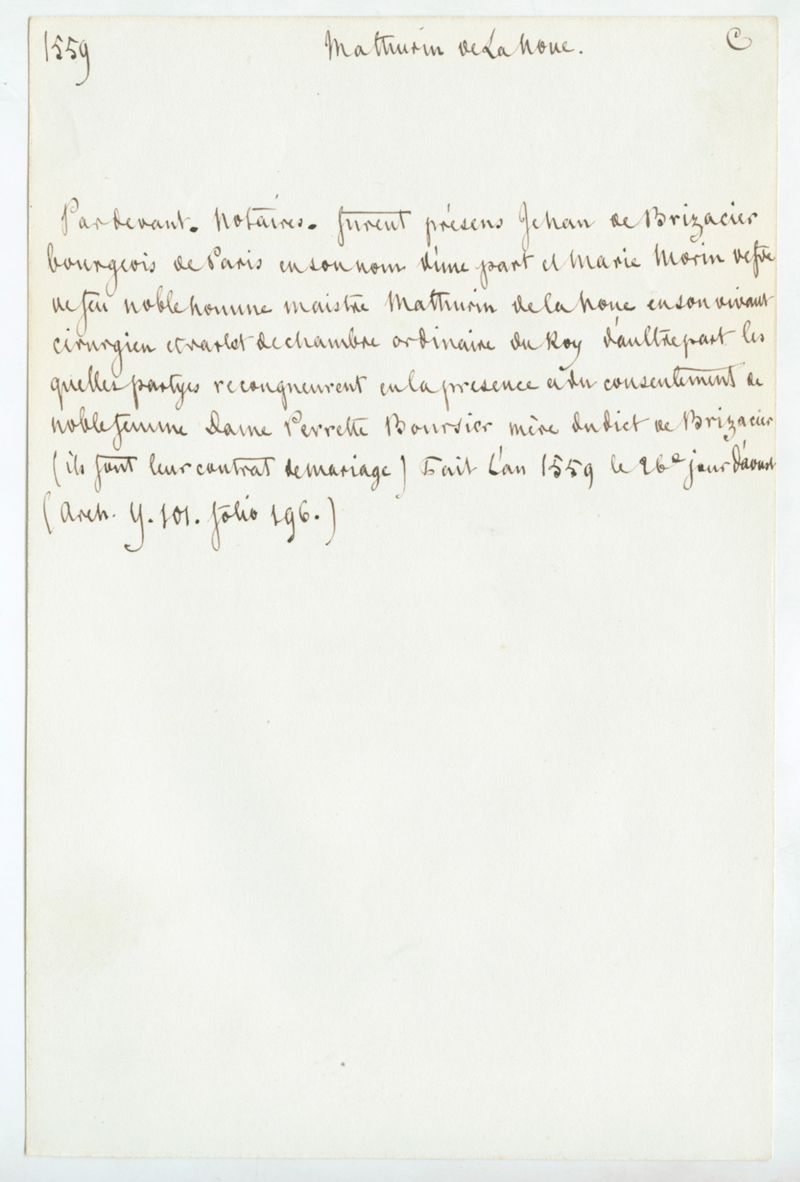 1559 Mathurin de La Noue. C
Par devant. Notaires. furent présens Jehan de Brizacier
bourgeois de Paris en son nom d'une part et Marie Morin vefve
de feu noble homme maistre Mathurin de la Noue en son vivant
cirurgien et varlet de chambre ordinaire du Roy d'aultre part les
quelles partyes recongneurent en la presence et du consentement de
noble femme Dame Perrette Boursier mère dudict de Brizacier
(ils font leur contrat de mariage) Fait L'an 1559 le 26e jour d'aoust
(Arch. Y. 101. folio 196.)